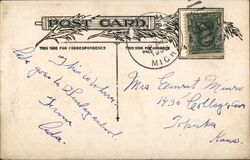 POST CARD
THIS SIDE FOR CORRESPONDENCE
THIS SIDE FOR ADDRESS ONLY.
MICH
This is where
Lida goes to Sunday school.
From
Lida.
Mrs Ernest Munro
1436 College Ave
Topeka
Kans.